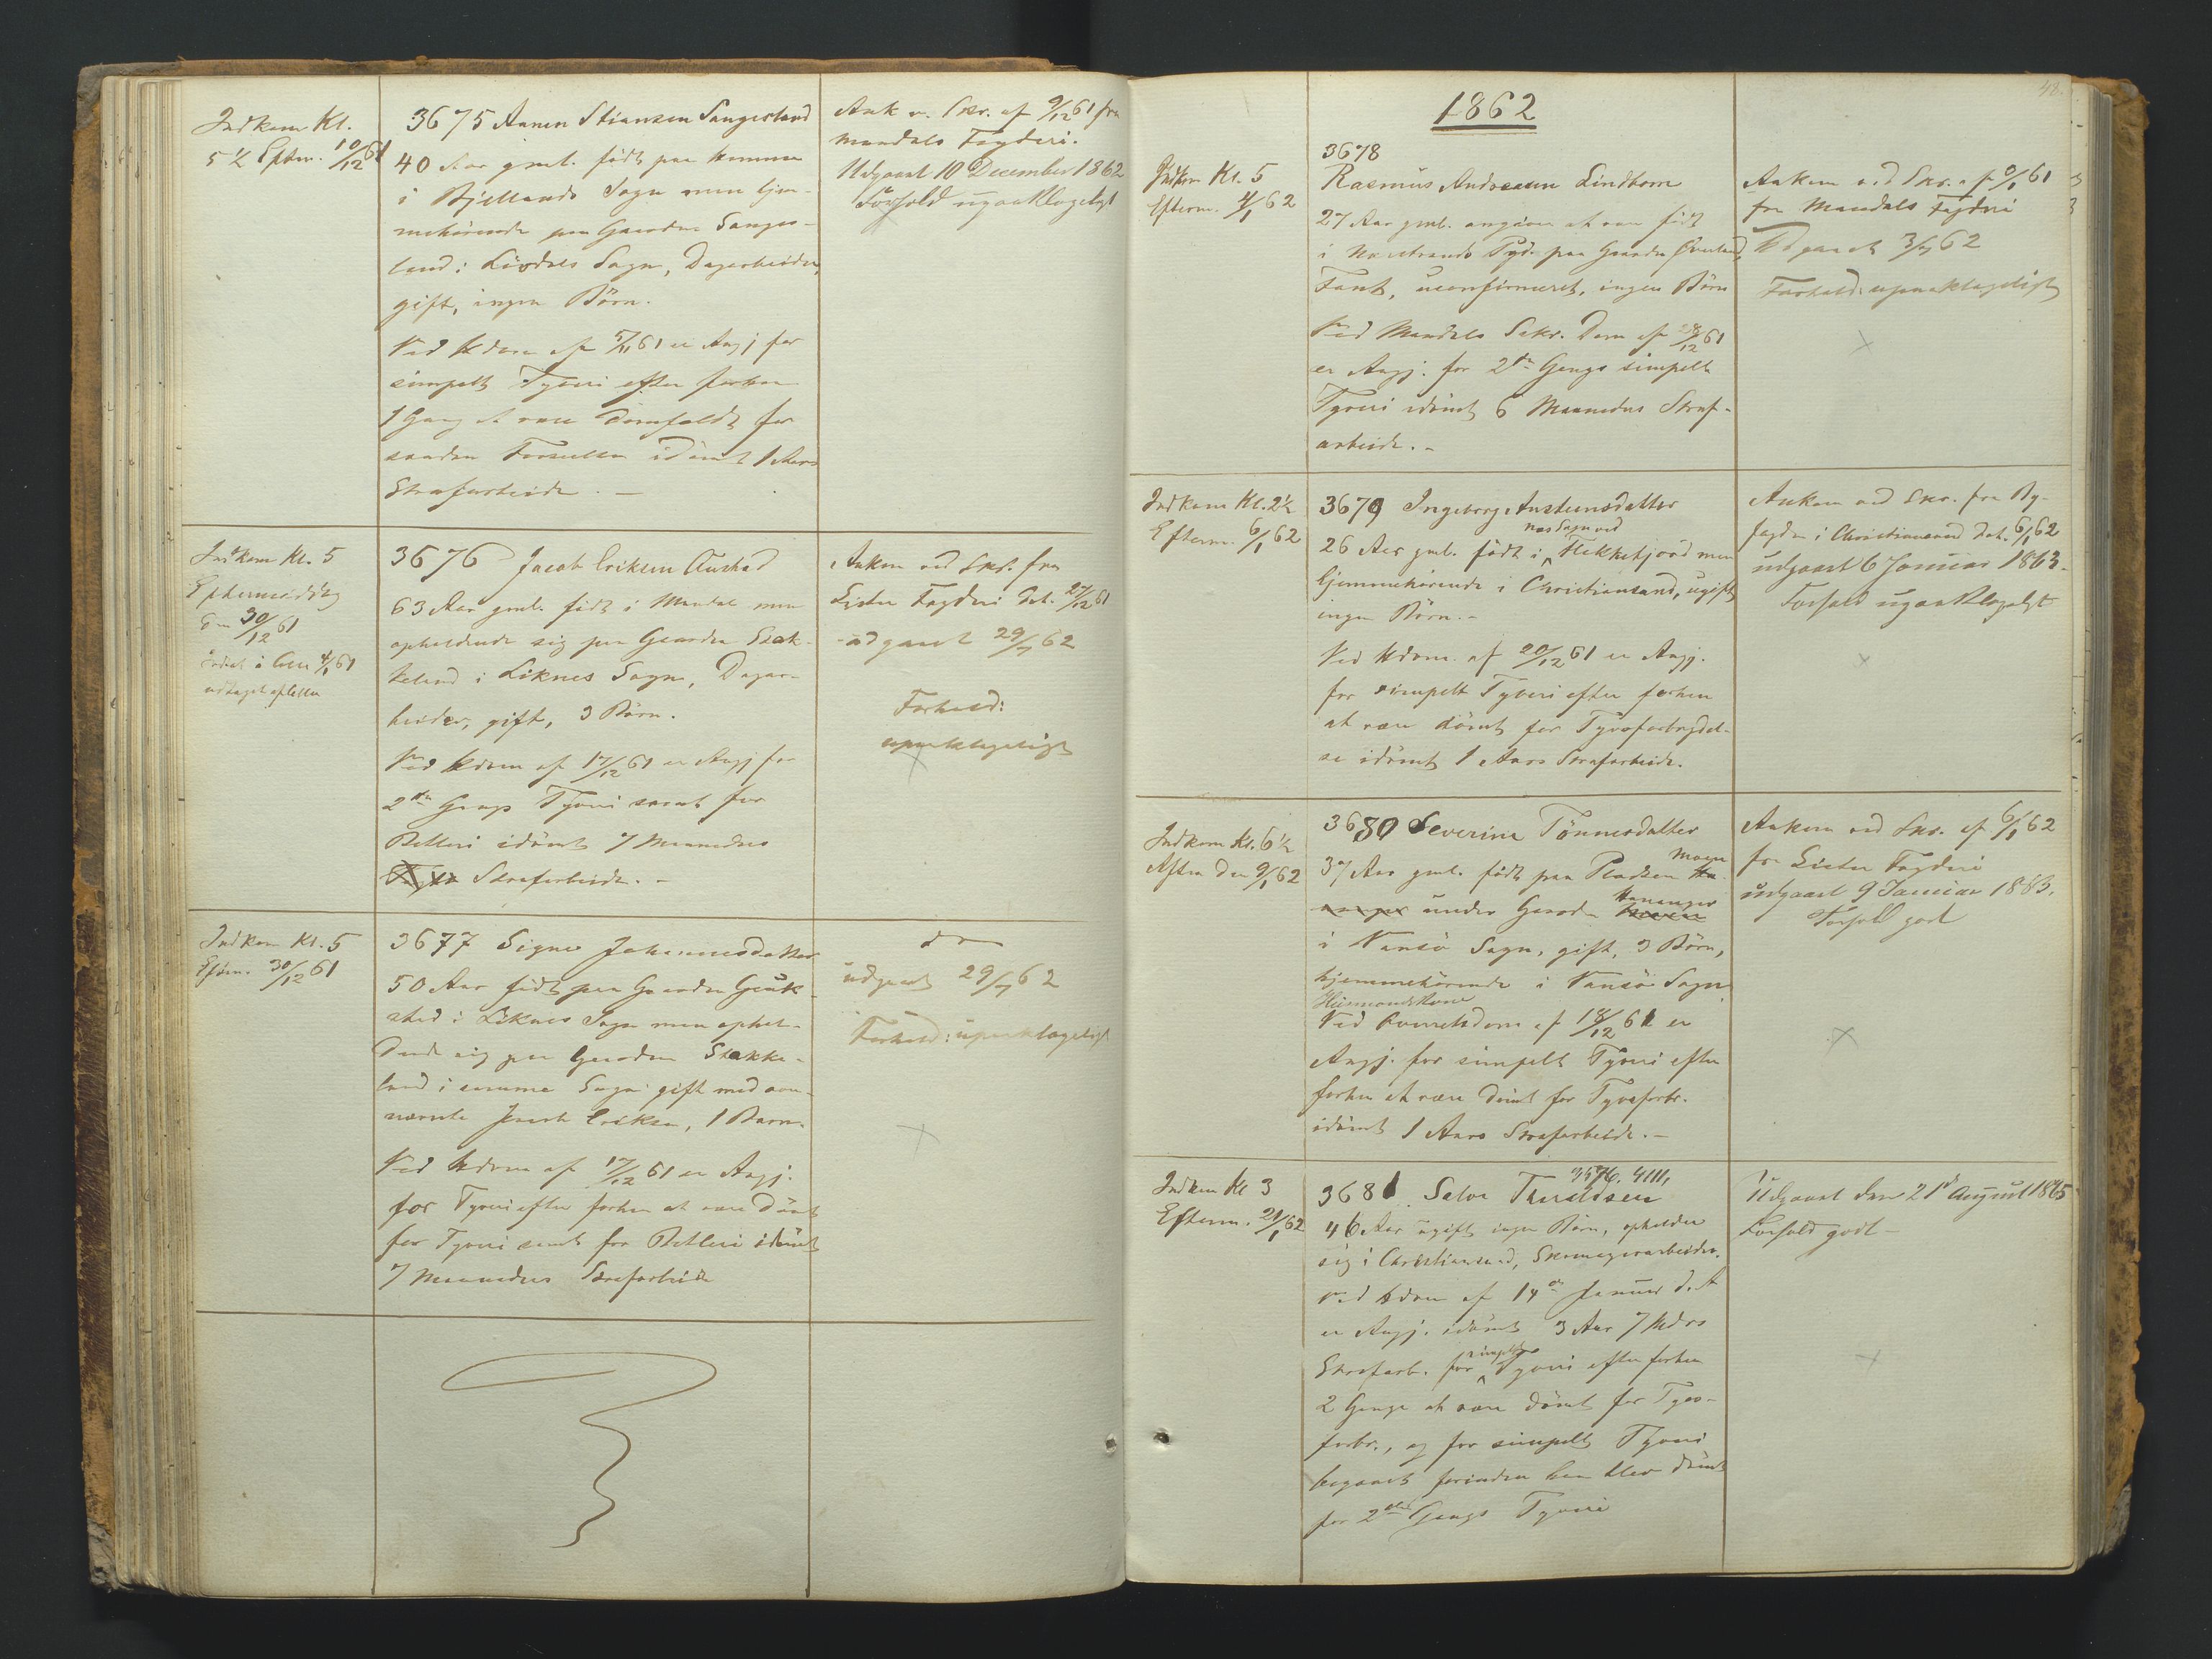 Indkom Kl.
5 ½ Efterm. 10/12 61
3675 Aanen Stiansen Sangesland
40 Aar gml. født paa Homme
i Bjellands Sogn men hjem-
mehørende paa Gaarden Sanges-
land i Løvdals Sogn, Dagarbeider,
gift, ingen Børn.
Ved Hdom af 5/11 61 er Angj for
simpelt Tyveri efter forhen
1 Gang at være domfældt for
saadan Forseelse idømt 1 Aars
Strafarbeide. —
Ank v. Skr. af 9/12 61 fra
Mandals Fogderi.
Udgaaet 10 December 1862
Forhold upaaklageligt
Indkom Kl. 5
Eftermiddag
den 30/12 61
indsat i Celle 4/1 61
udtaget af Cellen
3676 Jacob Eriksen Austad
63 Aar gml. født i Mandal men
opholdende sig paa Gaarden Stak-
keland i Liknes Sogn, Dagar-
beider, gift, 3 Børn.
Ved Hdom af 17/12 61 er Angj for
2den Gangs Tyveri samt for
Betleri idømt 7 Maaneders
Strafarbeide. -
Ankom ved Skr. fra
Lister Fogderi dat. 27/12 61
udgaaet 29/7 62
Forhold:
upaaklageligt
Indkom Kl. 5
Efterm. 30/12 61
3677 Signe Johannesdatter
50 Aar født paa Gaarden
sted i Liknes Sogn men ophol-
dende sig paa Gaarden Stakke-
land i samme Sogn gift med oven-
nævnte Jacob Eriksen, 1 Barn.
Ved Hdom af 17/12 61 er Angj.
for Tyveri efter forhen at være dømt
for Tyveri samt for Betleri idømt
7 Maaneders Strafarbeide
do
udgaaet 29/7 62
Forhold: upaaklageligt
1862
48.
Indkom Kl. 5
Efterm. 4/1 62
3678
Rasmus Andreasen Lindbom
27 Aar gml. angiver at være født
i Nærstrands Pgd. paa Gaarden Øvreland,
Fant, uconfirmeret, ingen Børn
Ved Mandals Sskr. Dom af 28/12 61
er Angj. for 2den Gangs simpelt
Tyveri idømt 6 Maaneders Straf-
arbeide. -
Ankom ved Skr. af /1 61
fra Mandals Fogderi
Udgaaet 3/7 62
Forhold: upaaklageligt
Indkom Kl. 2½
Efterm. 6/1 62
3679 Ingeborg Austensdatter
næs Sogn ved
26 Aar gml. født i Flekkefjord men
hjemmehørende i Christiansand, ugift
ingen Børn. -
Ved Hdom. af 20/12 61 er Angj.
for simpelt Tyveri efter forhen
at være dømt for Tyvsforbrydel-
se idømt 1 Aars Strafarbeide.
Ankom ved Skr. fra By-
fogden i Christiansand dat. 6/1 62
udgaaet 6 Januar 1863.
Forhold upaaklageligt
Indkom Kl. 6½
Aften den 9/1 62
3680 Severine Tönnesdatter
Moen
37 Aar gml. født paa Pladsen
under Gaarden Hananger
i Vansö Sogn, gift, 3 Børn,
hjemmehørende i Vansö Sogn
Huusmandskone
Ved Overretsdom af 18/12 61 er
Angj. for simpelt Tyveri efter
forhen at være dømt for Tyvsforbr.
idømt 1 Aars Strafarbeide. -
Ankom ved Skr. af 6/1 62
fra Lister Fogderi
udgaaet 9 Januar 1863.
Forhold godt
Indkom Kl 3
Efterm. 21/1 62
3576. 4111,
3681 Salve Thoraldsen
46 Aar ugift ingen Børn, opholder
sig i Christiansand, Skomagerarbeider.
Ved Hdom af 14de Januar d. A
er Angj. idømt 3 Aar 7 Mdrs
Strafarb. for simpelt Tyveri efter forhen
2 Gange at være dømt for Tyvs-
forbr., og for simpelt Tyveri
begaaet forinden han blev dømt
for 2den Gangs Tyveri
Udgaaet den 21de August 1865
Forhold godt -